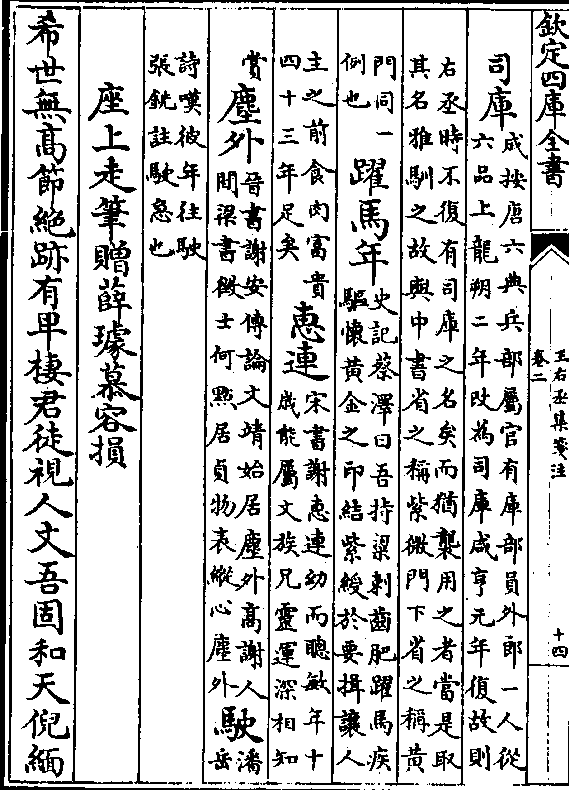 欽定四庫全書
王右丞集箋注
卷二
十四
司庫
成按唐六典兵部屬官有庫部員外郎一人從
六品上龍朔二年改為司庫咸亨元年復故則
右丞時不復有司庫之名矣而猶襲用之者當是取
其名雅馴之故與中書省之稱紫微門下省之稱黃
門同一
例也
躍馬年
史記蔡澤曰吾持粱刺齒肥躍馬疾
驅懷黃金之印結紫綬於要揖讓人
主之前食肉富貴
四十三年足矣
惠連
宋書謝惠連幼而聰敏年十
歲能屬文族兄靈運深相知
賞
塵外
晉書謝安傳論文靖始居塵外高謝人
間梁書徵士何㸃居貞物表縱心塵外
駛
潘
岳
詩嘆彼年往駛
張銑註駛急也
座上走筆贈薛璩慕容損
希世無高節絕跡有卑棲君徒視人文吾固和天倪緬